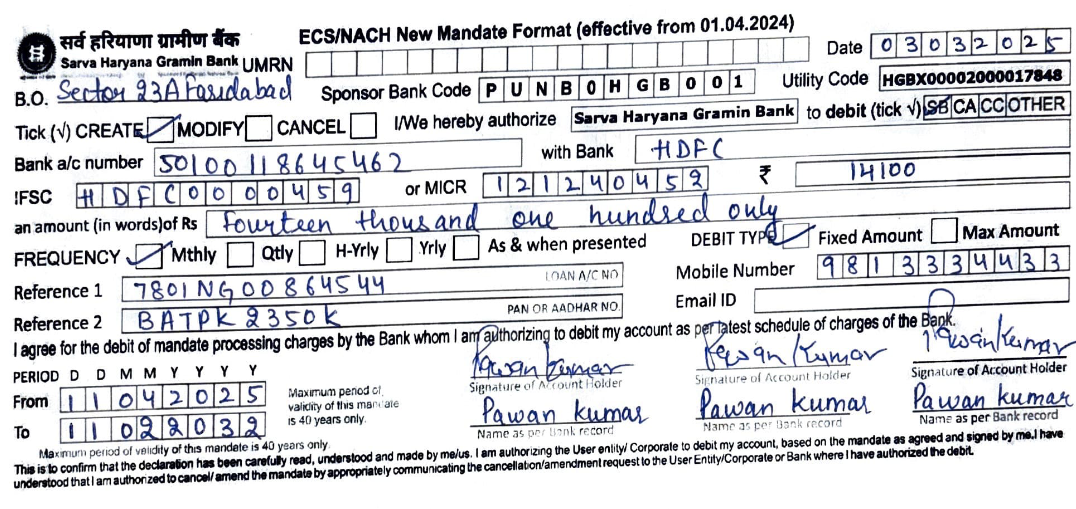 ECS/NACH New Mandate Format (effective from 01.04.2024)
सर्व हरियाणा ग्रामीण बैंक
Sarva Haryana Gramin Bank UMRN Date 03032025
B.O. Sector 23A Faridabad Sponsor Bank Code PUNB0HGB001 Utility Code HGBX00002000017848
Tick (√) CREATE MODIFY CANCEL I/We hereby authorize Sarva Haryana Gramin Bank to debit (tick √) SB CA CC OTHER
Bank a/c number 50100118645462 with Bank HDFC
IFSC HDFC0000459 or MICR 121240452 ₹ 14100
an amount (in words)of Rs fourteen thousand one hundred only
FREQUENCY Mthly Qtly H-Yrly Yrly As & when presented DEBIT TYPE Fixed Amount Max Amount
Reference 1 7801NG00864544 LOAN A/C NO Mobile Number 9813334433
Reference 2 BATPK2350K PAN OR AADHAR NO. Email ID
I agree for the debit of mandate processing charges by the Bank whom I am authorizing to debit my account as per latest schedule of charges of the Bank.
PERIOD D D M M Y Y Y Y Pawan Kumar Pawan Kumar Pawan Kumar
From 11042025 Maximum period of validity of this mandate is 40 years only. Signature of Account Holder Signature of Account Holder Signature of Account Holder
To 11022032 Pawan kumar Pawan kumar Pawan kumar
Name as per Bank record Name as per Bank record Name as per Bank record
Maximum period of validity of this mandate is 40 years only.
This is to confirm that the declaration has been carefully read, understood and made by me/us. I am authorizing the User entity/ Corporate to debit my account, based on the mandate as agreed and signed by me.I have
understood that I am authorized to cancel/ amend the mandate by appropriately communicating the cancellation/amendment request to the User Entity/Corporate or Bank where I have authorized the debit.